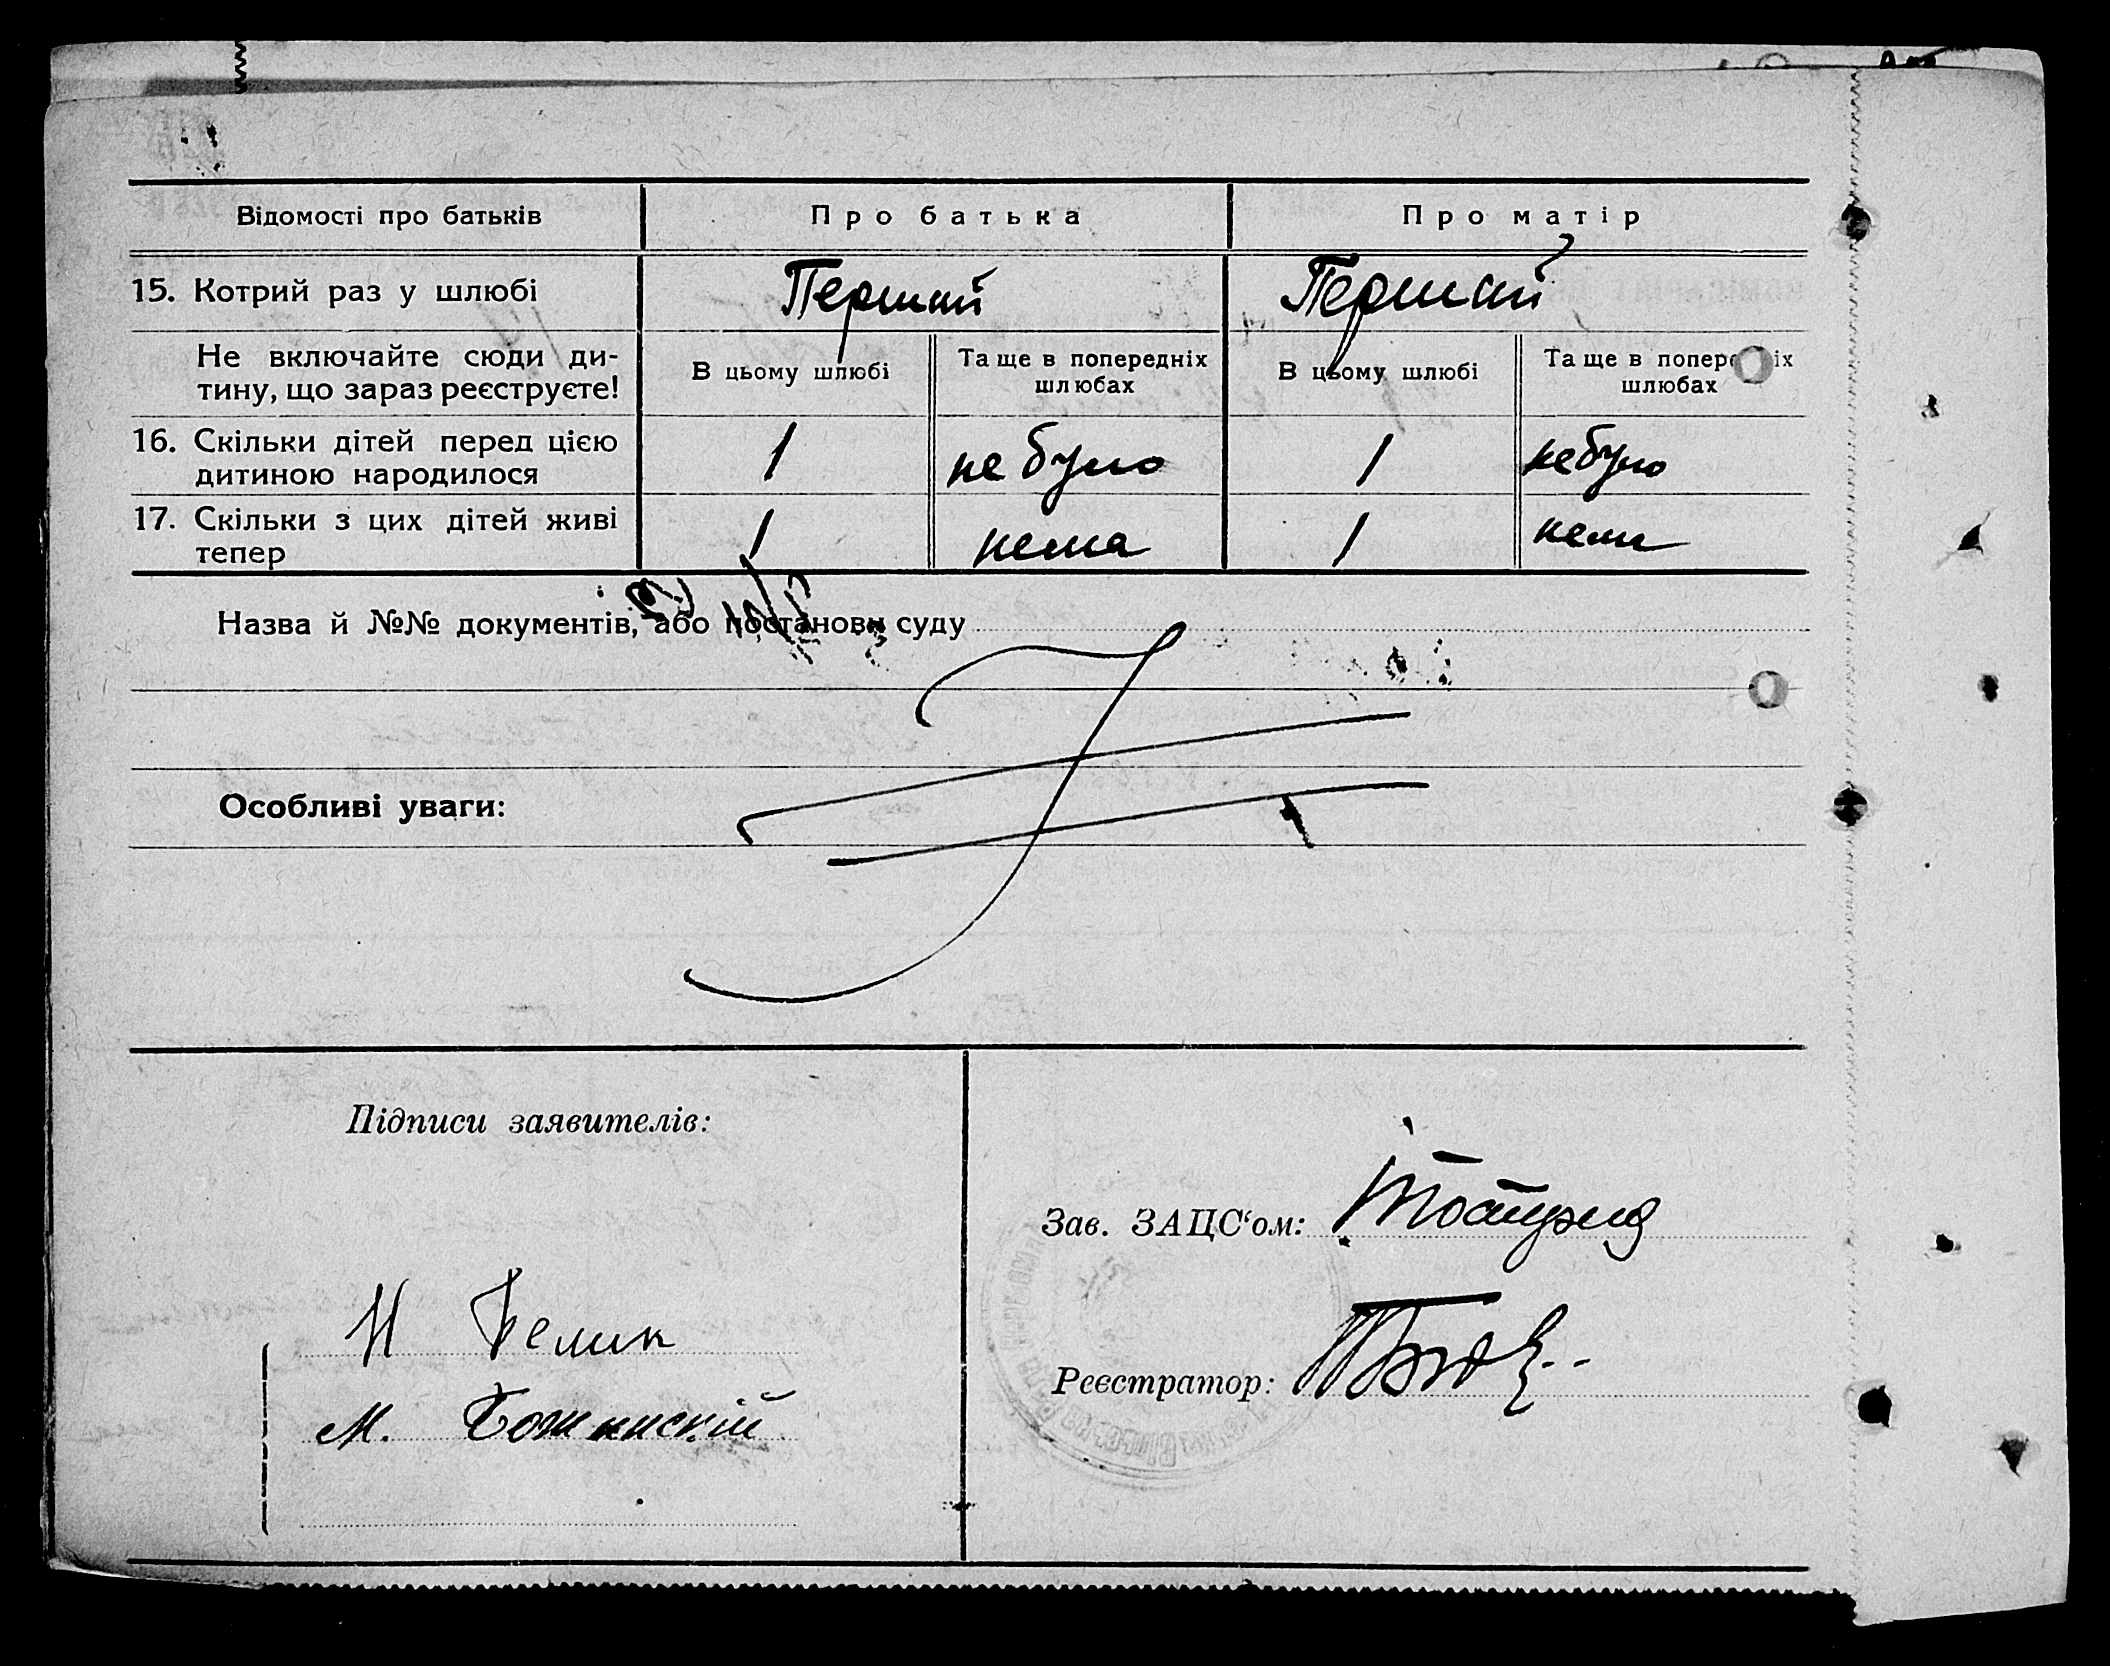 Відомості про батьків
Про батька
Про матір
15. Котрий раз у шлюбі
Першай
Першай
Не включайте сюди ди-
тину, що зараз реєструєте!
В цьому шлюбі
Та ще в попередніх
шлюбах
В цьому шлюбі
Та ще в попередніх
шлюбах
16. Скільки дітей перед цією
дитиною народилося
1
не було
1
не було
17. Скільки з цих дітей живі
тепер
1
нема
1
нема
Назва й №№ документів, або постанови суду
Особливі уваги:
Підписи заявителів:
Зав. ЗАЦС‘ом:
Н Белик
Реєстратор:
М.